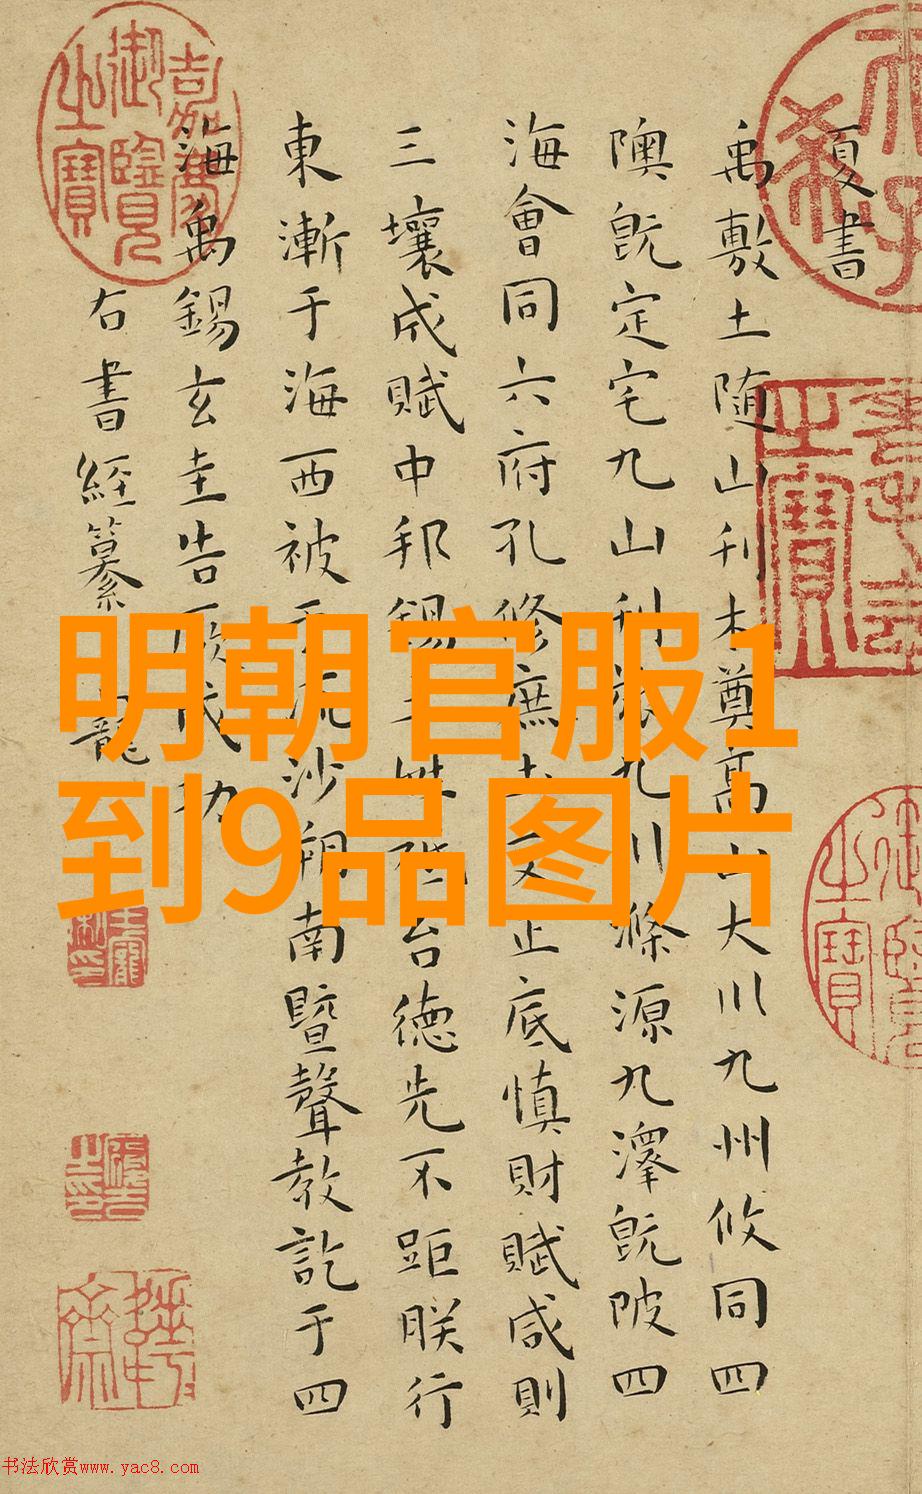 夏書
禹敷土随山刋木奠高山大川九州攸同四
隩旣定宅九山刋旅九川滌源九澤旣陂四
海會同六府孔修庶土交正底慎財賦咸則
三壤成賦中邦錫土姓祗台德先不距朕行
東漸于海西被于流沙朔南暨聲教訖于四
海禹錫玄圭告厥成功
右書經纂 寵
嘉慶御覽之寶
明朝官服1
到9品图片
书法欣赏www.yac8.com